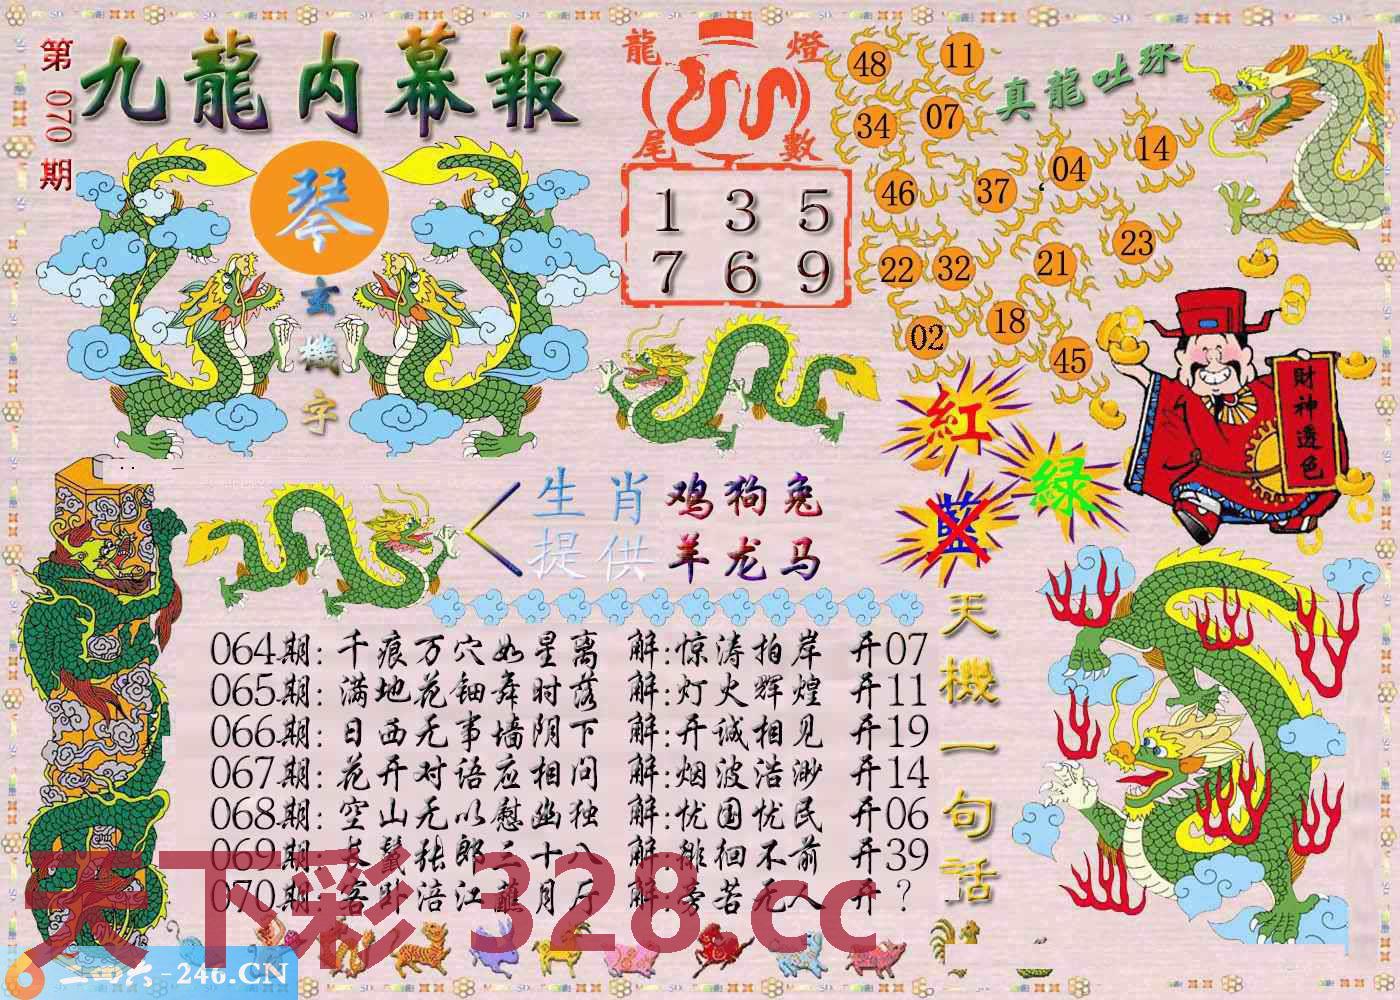 第070期
九龍内幕報
琴
玄機字
龍燈尾數
1 3 5
7 6 9
真龍吐珠
48 11
34 07
46 37 04 14
22 32 21 23
02 18 45
財神透色
紅
绿
藍
生肖提供
鸡狗兔
羊龙马
天機一句話
064期:千痕万穴如星离 解:惊涛拍岸 开07
065期:满地花钿舞时落 解:灯火辉煌 开11
066期:日西无事墙阴下 解:开诚相见 开19
067期:花开对语应相问 解:烟波浩渺 开14
068期:空山无以慰幽独 解:忧国忧民 开06
069期:长鬣张郎三十八 解:徘徊不前 开39
070期:客卧涪江蘸月厅 解:旁若无人 开?
天下彩 328.cc
二四六-246.CN